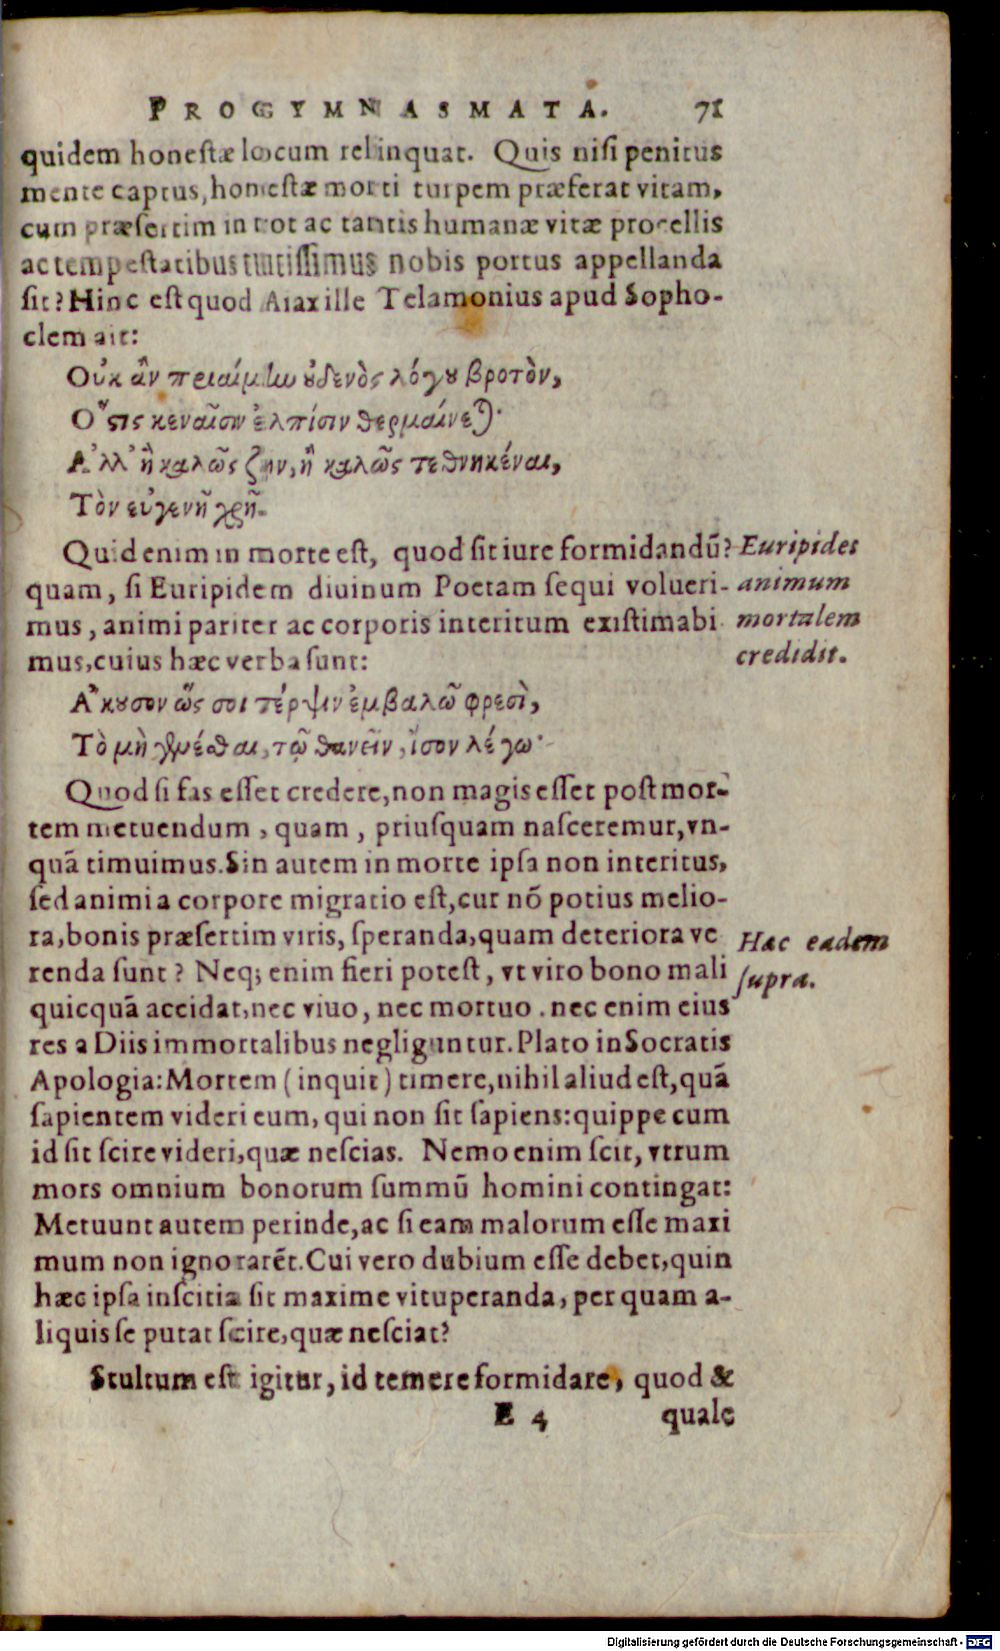 PROGYMNASMATA. 71
quidem honestæ locum relinquat. Quis nisi penitus
mente captus, honestæ morti turpem præferat vitam,
cum præsertim in tot ac tantis humanæ vitæ procellis
ac tempestatibus tutissimus nobis portus appellanda
sit? Hinc est quod Aiax ille Telamonius apud Sopho-
clem ait:
Οὐκ ἂν πριαίμην οὐδενὸς λόγου βροτὸν,
Ὅστις κεναῖσιν ἐλπίσιν θερμαίνεται·
Ἀλλ' ἢ καλῶς ζῆν, ἢ καλῶς τεθνηκέναι,
Τὸν εὐγενῆ χρῆ.
Quid enim in morte est, quod sit iure formidandū? Euripides
quam, si Euripidem diuinum Poetam sequi volueri- animum
mus, animi pariter ac corporis interitum existimabi mortalem
mus, cuius hæc verba sunt: credidit.
Ἄκουσον ὥς σοι τέρψιν ἐμβαλῶ φρεσὶ,
Τὸ μὴ γενέσθαι, τῷ θανεῖν, ἴσον λέγω·
Quod si fas esset credere, non magis esset post mor-
tem metuendum, quam, priusquam nasceremur, vn-
quā timuimus. Sin autem in morte ipsa non interitus,
sed animi a corpore migratio est, cur nō potius melio-
ra, bonis præsertim viris, speranda, quam deteriora ve Hac eadem
renda sunt? Neq; enim fieri potest, vt viro bono mali supra.
quicquā accidat, nec viuo, nec mortuo. nec enim eius
res a Diis immortalibus negliguntur. Plato in Socratis
Apologia: Mortem (inquit) timere, nihil aliud est, quā
sapientem videri eum, qui non sit sapiens: quippe cum
id sit scire videri, quæ nescias. Nemo enim scit, vtrum
mors omnium bonorum summū homini contingat:
Metuunt autem perinde, ac si eam malorum esse maxi
mum non ignorarēt. Cui vero dubium esse debet, quin
hæc ipsa inscitia sit maxime vituperanda, per quam a-
liquis se putat scire, quæ nesciat?
Stultum est igitur, id temere formidare, quod &
E 4 quale
Digitalisierung gefördert durch die Deutsche Forschungsgemeinschaft - DFG